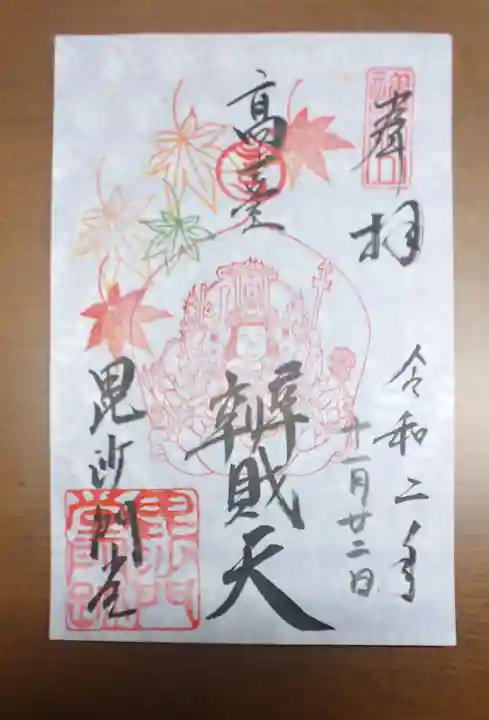 奉拝
令和二年
十一月廿二日
高臺
辨財天
毘沙門堂